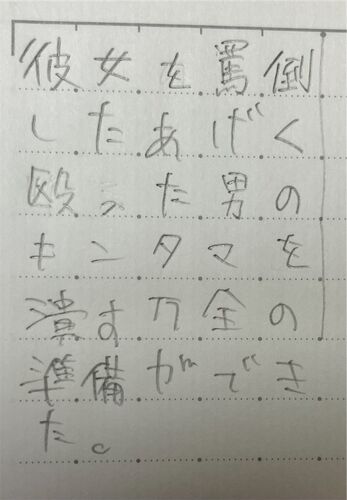 彼女を罵倒
したあげく
殴った男の
キンタマを
潰す万全の
準備ができ
た。